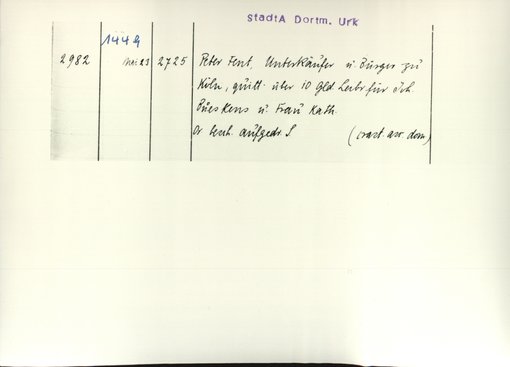 StadtA Dortm. Urk
2982 1449 Mai 23 2725 Peter Fent, Unterkäufer u. Bürger zu
Köln, quitt. über 10 Gld. Leibr. für Joh.
Büeskens u. Frau Kath.
Or. besch. aufgedr. S (crast. asc. dom)